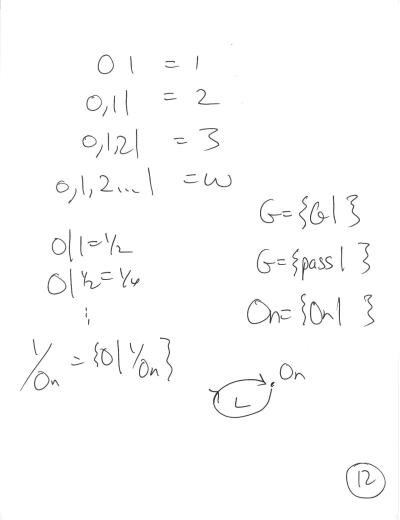 0 | = 1
0,1| = 2
0,1,2| = 3
0,1,2...| = ω
0|1=1/2
0|1/2=1/4
⋮
1/On = {0|1/On}
G={G| }
G={pass| }
On={On| }
On
L
12